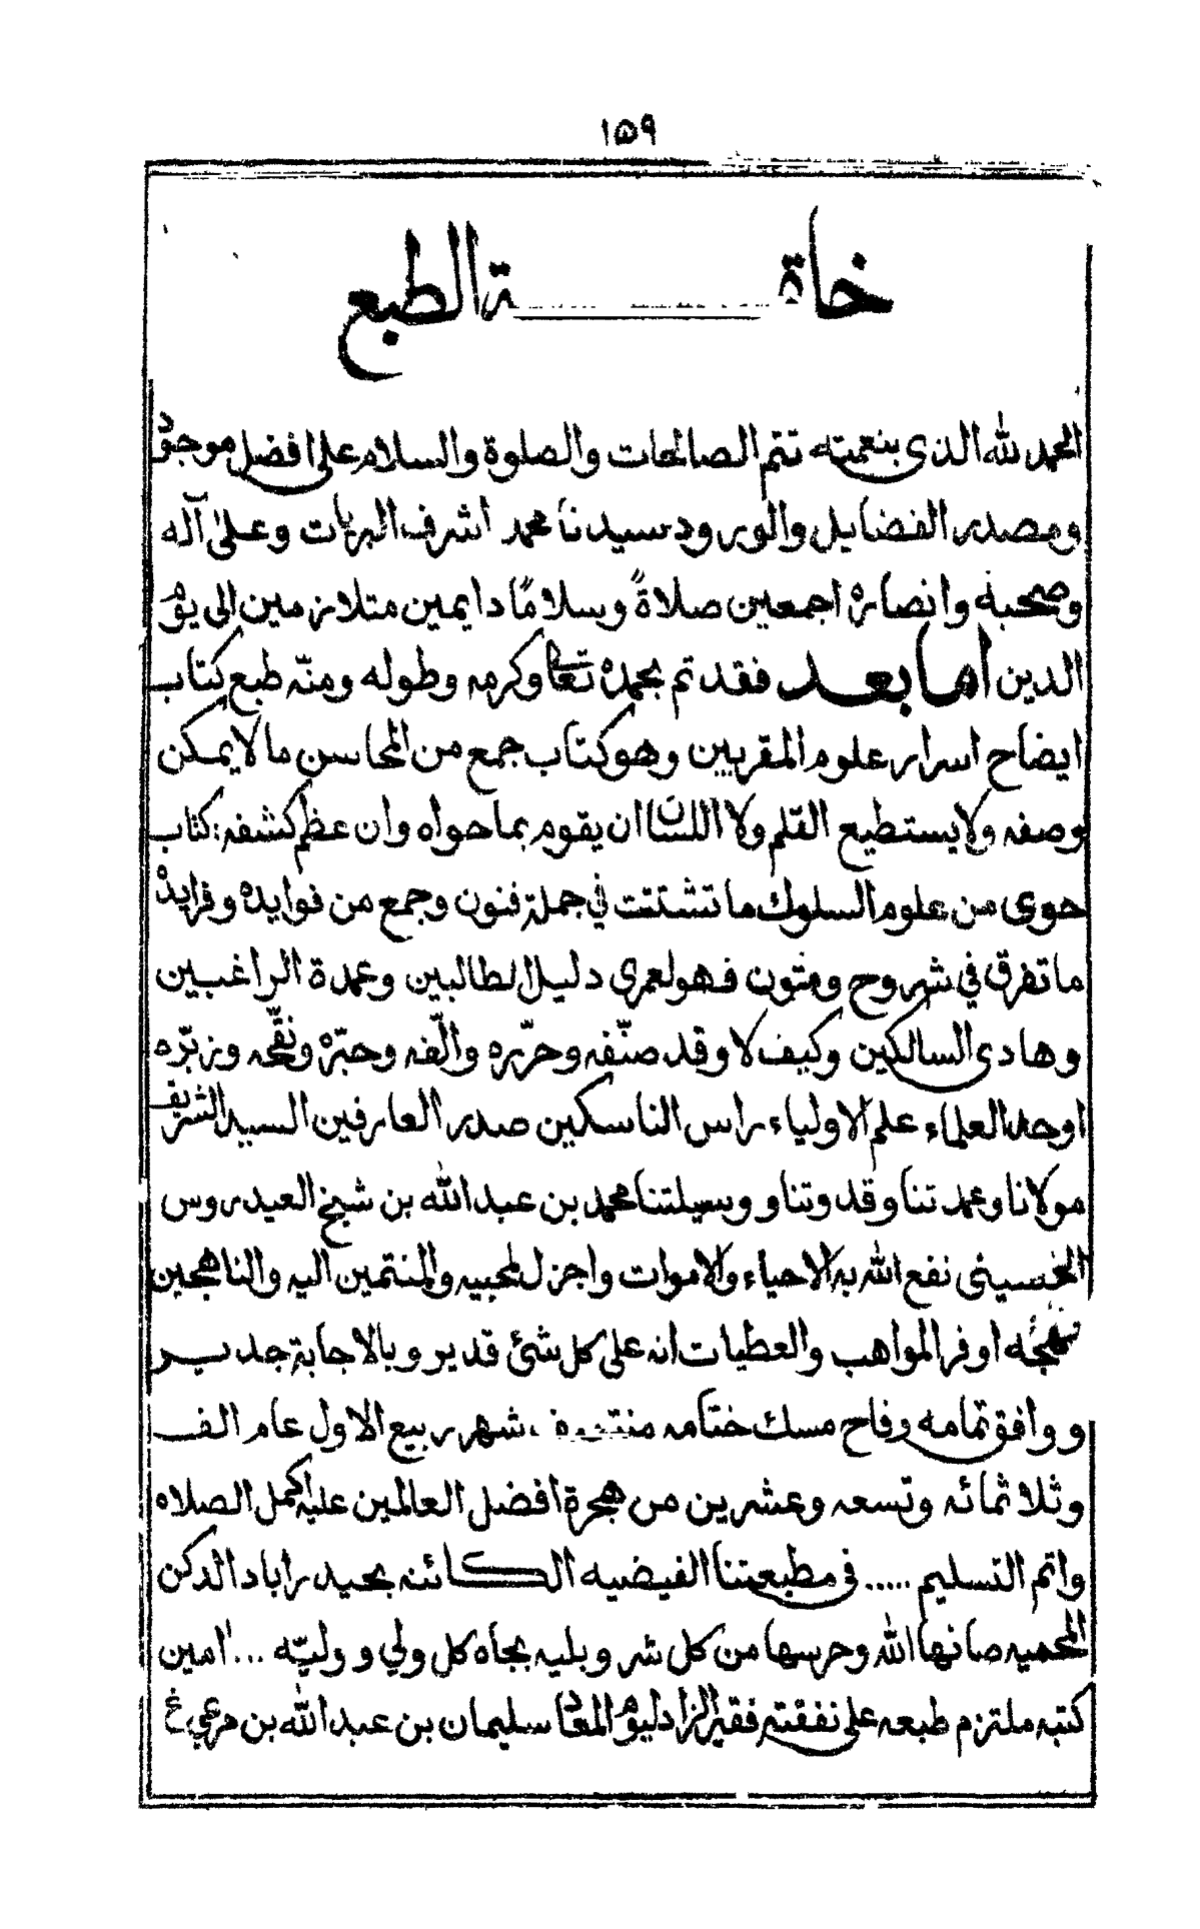 ١٥٩
خاتمة الطبع
الحمد لله الذى بنعمته تتم الصالحات والصلوة والسلام على افضل موجود
ومصدر الفضايل والورود سيدنا محمد اشرف البريات وعلىٰ آله
وصحبه وانصاره اجمعين صلاةً وسلامًا دايمين متلازمين الى يوم
الدين اما بعد فقد تم بحمده تعالى وكرمه وطوله ومنّه طبع كتاب
ايضاح اسرار علوم المقربين وهو كتاب جمع من المحاسن ما لا يمكن
وصفه ولا يستطيع القلم ولا اللسان ان يقوم بما حواه وان عظم كشفه: كتاب
حوى من علوم السلوك ما تشتت في جملة فنون وجمع من فوايده وفرايده
ما تفرق في شروح ومتون فهو لعمري دليل الطالبين وعمدة الراغبين
وهادى السالكين وكيف لا وقد صنّفه وحرّره والّفه وحبّره ونقّحه وزبّره
اوحد العلماء علم الاولياء راس الناسكين صدر العارفين السيد الشريف
مولانا وعمدتنا وقدوتنا ووسيلتنا محمد بن عبد الله بن شيخ العيدروس
الحسينى نفع الله به الاحياء والاموات واجزل لمحبيه والمنتمين اليه والناهجين
نهجه اوفر المواهب والعطيات انه على كل شئ قدير وبالاجابة جدير
ووافق تمامه وفاح مسك ختامه شهر ربيع الاول عام الف
وثلاثمائه وتسعه وعشرين من هجرة افضل العالمين عليه اكمل الصلاه
واتم التسليم ..... فى مطبعتنا الفيضيه الكائنه بحيدراباد الدكن
المحميه صانها الله وحرسها من كل شر وبليه بجاه كل ولي ووليّه ... امين
كتبه ملتزم طبعه على نفقته فقير الزاد ليوم المعاد سليمان بن عبد الله بن مرعي غ